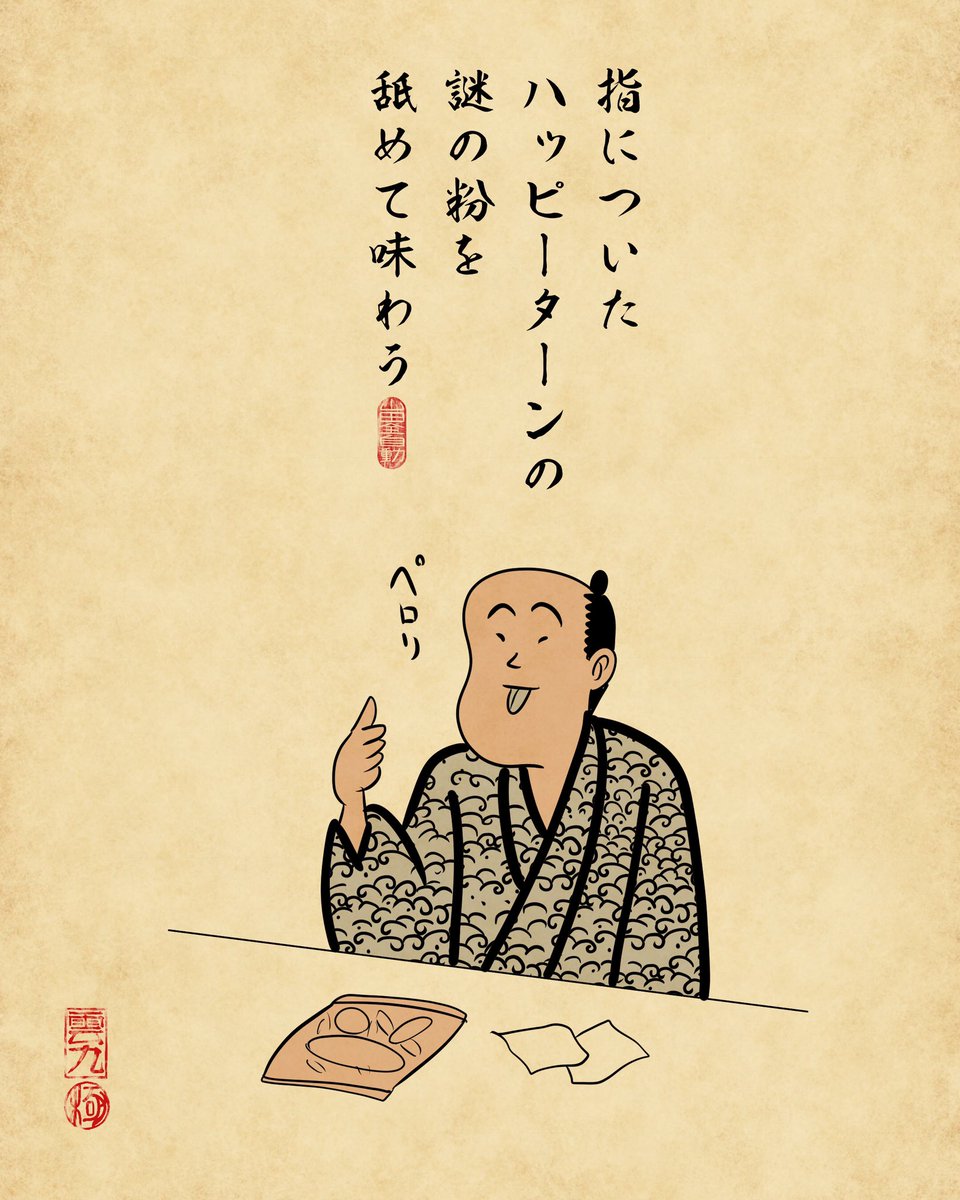 指についた
ハッピーターンの
謎の粉を
舐めて味わう
ペロリ